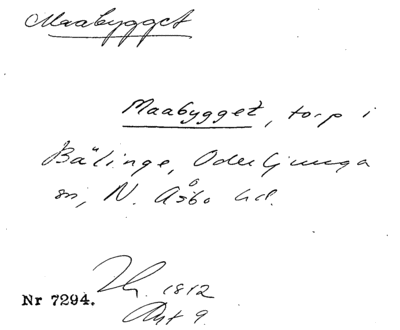 Maabygget
Maabygget, torp i
Bälinge, Oderljunga
sn, N. Åsbo hd.
1812
Nr 7294.